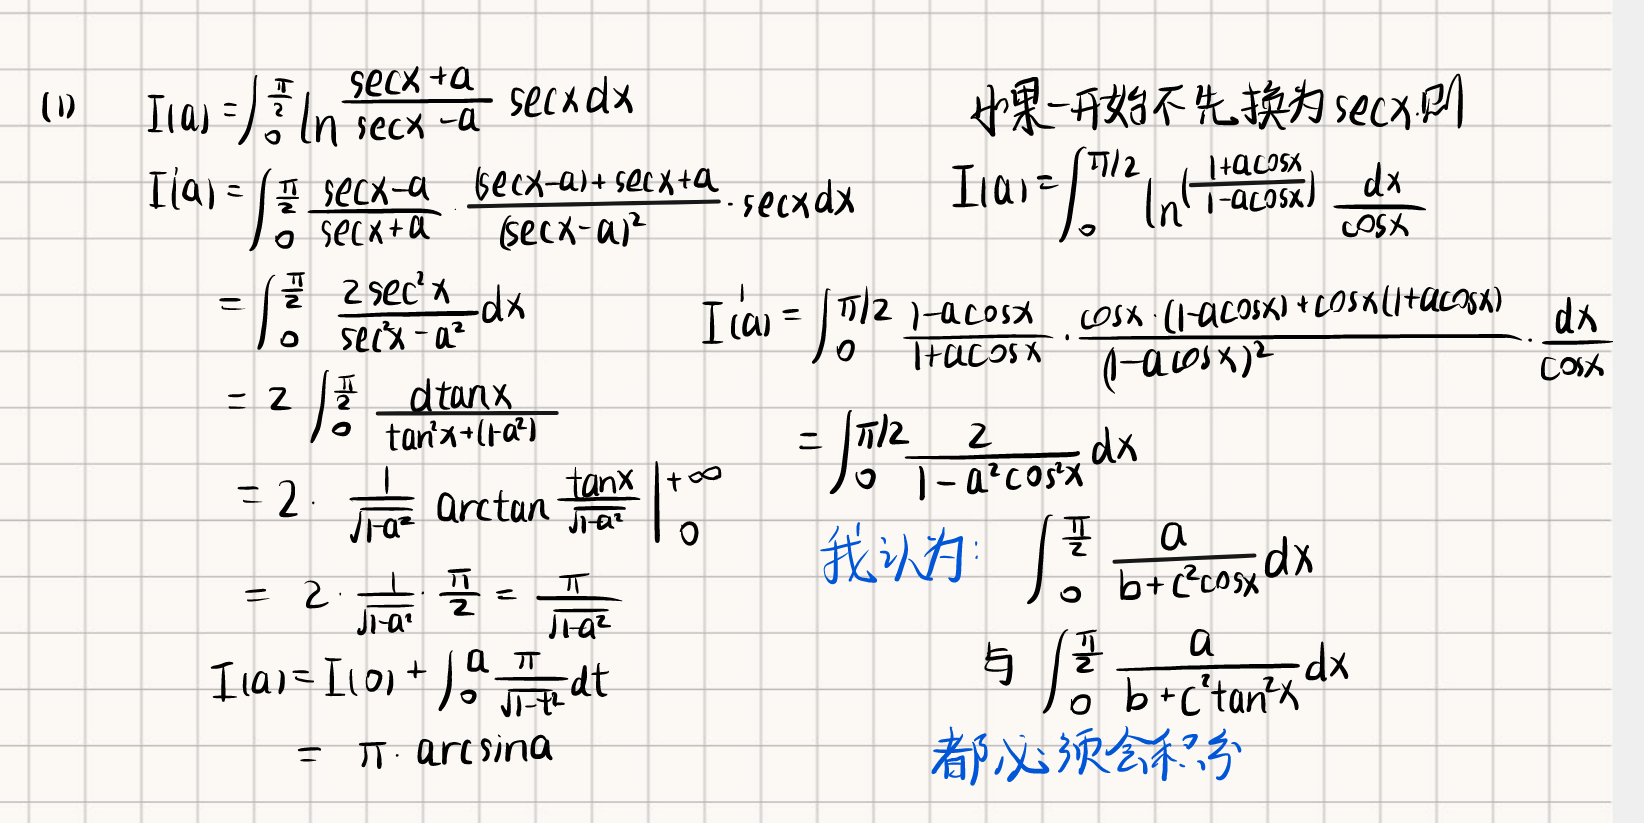 (1) I(a) = ∫_0^{π/2} ln \frac{secx+a}{secx-a} secx dx
I'(a) = ∫_0^{π/2} \frac{secx-a}{secx+a} · \frac{(secx-a)+secx+a}{(secx-a)^2} · secx dx
= ∫_0^{π/2} \frac{2sec^2x}{sec^2x-a^2} dx
= 2 ∫_0^{π/2} \frac{dtanx}{tan^2x+(1-a^2)}
= 2 · \frac{1}{\sqrt{1-a^2}} arctan \frac{tanx}{\sqrt{1-a^2}} |_0^{+∞}
= 2 · \frac{1}{\sqrt{1-a^2}} · \frac{π}{2} = \frac{π}{\sqrt{1-a^2}}
I(a) = I(0) + ∫_0^a \frac{π}{\sqrt{1-t^2}} dt
= π · arcsina
如果一开始不先换为secx.则
I(a) = ∫_0^{π/2} ln(\frac{1+acosx}{1-acosx}) \frac{dx}{cosx}
I'(a) = ∫_0^{π/2} \frac{1-acosx}{1+acosx} · \frac{cosx·(1-acosx)+cosx(1+acosx)}{(1-acosx)^2} · \frac{dx}{cosx}
= ∫_0^{π/2} \frac{2}{1-a^2cos^2x} dx
我认为: ∫_0^{π/2} \frac{a}{b+c^2cosx} dx
与 ∫_0^{π/2} \frac{a}{b+c^2tan^2x} dx
都必须会积分